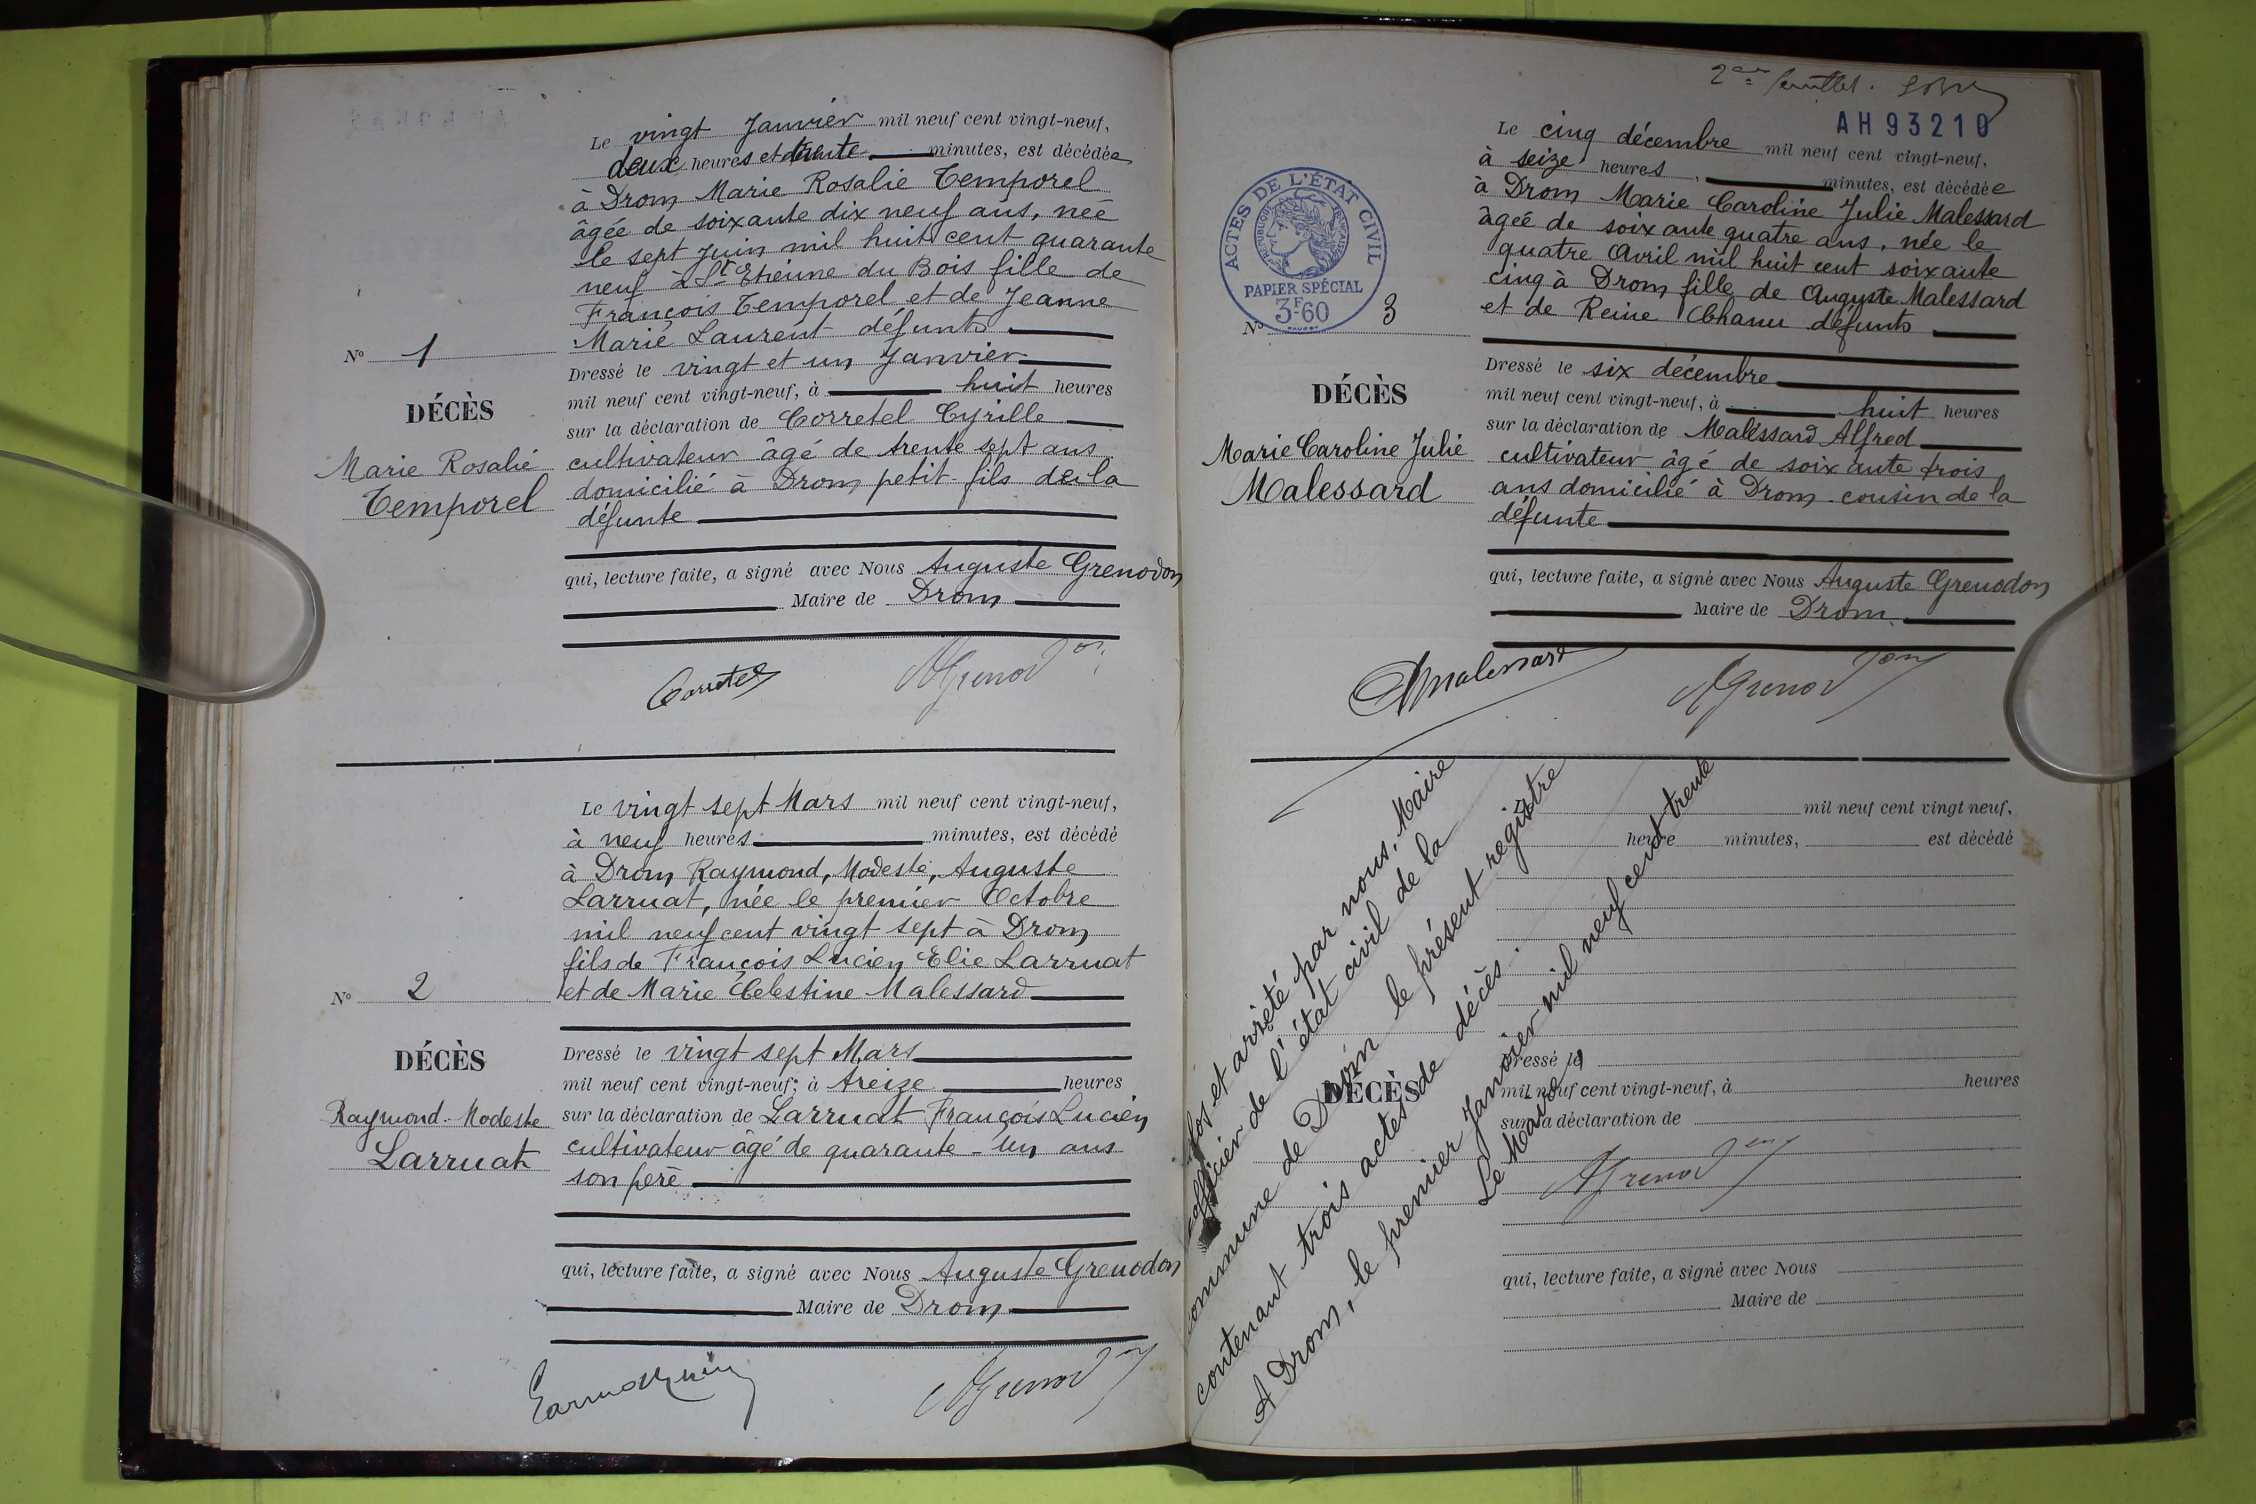 Le vingt Janvier mil neuf cent vingt-neuf,
deux heures et trente minutes, est décédée
à Drom Marie Rosalie Temporel
âgée de soixante dix neuf ans, née
le sept Juin mil huit cent quarante
neuf à St Etienne du Bois fille de
François Temporel et de Jeanne
Marie Laurent défunts
No 1
DÉCÈS
Marie Rosalie
Temporel
Dressé le vingt et un Janvier
mil neuf cent vingt-neuf, à huit heures
sur la déclaration de Corretel Cyrille
cultivateur âgé de trente sept ans
domicilié à Drom petit-fils de la
défunte
qui, lecture faite, a signé avec Nous Auguste Grenodon
Maire de Drom
Corretel AGrenodon
Le vingt sept Mars mil neuf cent vingt-neuf,
à neuf heures minutes, est décédé
à Drom Raymond, Modeste, Auguste
Larruat, née le premier Octobre
mil neuf cent vingt sept à Drom
fils de François Lucien Elie Larruat
et de Marie Célestine Malessard
No 2
DÉCÈS
Raymond-Modeste
Larruat
Dressé le vingt sept Mars
mil neuf cent vingt-neuf; à treize heures
sur la déclaration de Larruat François Lucien
cultivateur âgé de quarante-un ans
son père
qui, lecture faite, a signé avec Nous Auguste Grenodon
Maire de Drom
AGrenodon
AH93210
Le cinq décembre mil neuf cent vingt-neuf,
à seize heures, minutes, est décédée
à Drom Marie Caroline Julie Malessard
âgée de soixante quatre ans, née le
quatre Avril mil huit cent soixante
cinq à Drom fille de Auguste Malessard
et de Reine Chanu défunts
ACTES DE L'ÉTAT CIVIL
RÉPUBLIQUE FRANÇAISE
PAPIER SPÉCIAL
3F.60
No 3
DÉCÈS
Marie Caroline Julie
Malessard
Dressé le six décembre
mil neuf cent vingt-neuf, à huit heures
sur la déclaration de Malessard Alfred
cultivateur âgé de soixante trois
ans domicilié à Drom cousin de la
défunte
qui, lecture faite, a signé avec Nous Auguste Grenodon
Maire de Drom
AMalessard AGrenodon
mil neuf cent vingt neuf,
heure minutes, est décédé
DÉCÈS
Dressé le
mil neuf cent vingt-neuf, à heures
sur la déclaration de
qui, lecture faite, a signé avec Nous
Maire de
Clos et arrêté par nous, Maire
officier de l'état civil de la
commune de Drom le présent registre
contenant trois actes de décès.
A Drom, le premier Janvier mil neuf cent trente
Le Maire
AGrenodon